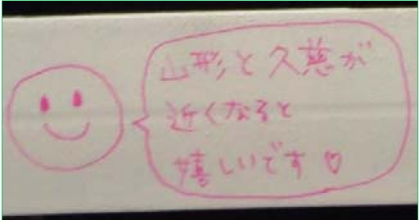 山形と久慈が
近くなると
嬉しいです♡